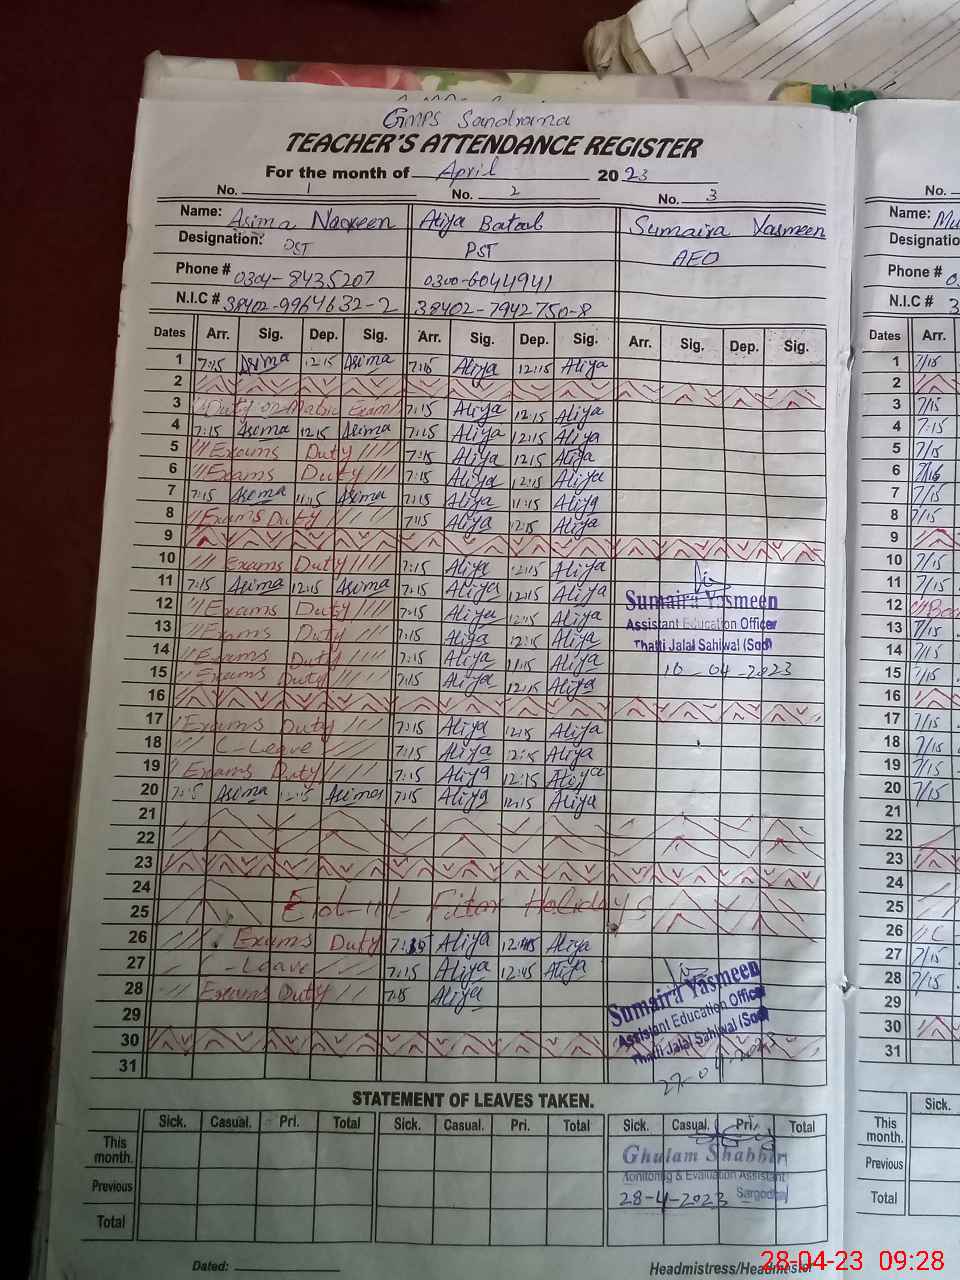 GMPS Sandrana
TEACHER'S ATTENDANCE REGISTER
For the month of April 2023
No. 1 No. 2 No. 3 No.
Name: Asima Nagreen Aliya Batool Sumaira Yasmeen Name: Mu
Designation: PST PST AEO Designatio
Phone # 0304-8435207 0300-6044941 Phone # 0
N.I.C # 38402-9964632-2 38402-7942750-8 N.I.C # 3
Dates Arr. Sig. Dep. Sig. Arr. Sig. Dep. Sig. Arr. Sig. Dep. Sig. Dates Arr.
1 7:15 Asima 12:15 Asima 7:15 Aliya 12:15 Aliya 1 7/15
2 2
3 Duty on Matric Exam 7:15 Aliya 12:15 Aliya 3 7/15
4 7:15 Asima 12:15 Asima 7:15 Aliya 12:15 Aliya 4 7:15
5 Exams Duty 7:15 Aliya 12:15 Aliya 5 7/15
6 Exams Duty 7:15 Aliya 12:15 Aliya 6
7 7:15 Asima 11:15 Asima 7:15 Aliya 11:15 Aliya 7 7/15
8 Exams Duty 7:15 Aliya 12:15 Aliya 8 7/15
9 9
10 Exams Duty 7:15 Aliya 12:15 Aliya 10 7/15
11 7:15 Asima 12:15 Asima 7:15 Aliya 12:15 Aliya 11 7/15
12 Exams Duty 7:15 Aliya 12:15 Aliya 12
13 Exams Duty 7:15 Aliya 12:15 Aliya 13 7/15
14 Exams Duty 7:15 Aliya 11:15 Aliya 14 7/15
15 Exams Duty 7:15 Aliya 12:15 Aliya 15 7/15
Sumaira Yasmeen
Assistant Education Officer
Thatti Jalal Sahiwal (Sgd)
10-04-2023
16 16
17 Exams Duty 7:15 Aliya 12:15 Aliya 17 7/15
18 C-Leave 7:15 Aliya 12:15 Aliya 18 7/15
19 Exams Duty 7:15 Aliya 12:15 Aliya 19 7/15
20 7:15 Asima 12:15 Asima 7:15 Aliya 12:15 Aliya 20 7/15
21 21
22 22
23 23
24 24
25 Eid-ul-Fitar Holidays 25
26 Exams Duty Aliya Aliya 26 C
27 C-Leave 7:15 Aliya 12:45 Aliya 27 7/15
28 Exams Duty 7:15 Aliya 28 7/15
29 29
30 30
31 31
Sumaira Yasmeen
Assistant Education Officer
Thatti Jalal Sahiwal (Sgd)
27-04-2023
STATEMENT OF LEAVES TAKEN.
Sick. Casual. Pri. Total Sick. Casual. Pri. Total Sick. Casual. Pri. Total Sick.
This month. This month.
Previous Previous
Total Total
Ghulam Shabbir
Monitoring & Evaluation Assistant
28-4-2023 Sargodha
Dated: Headmistress/Headmaster
28-04-23 09:28